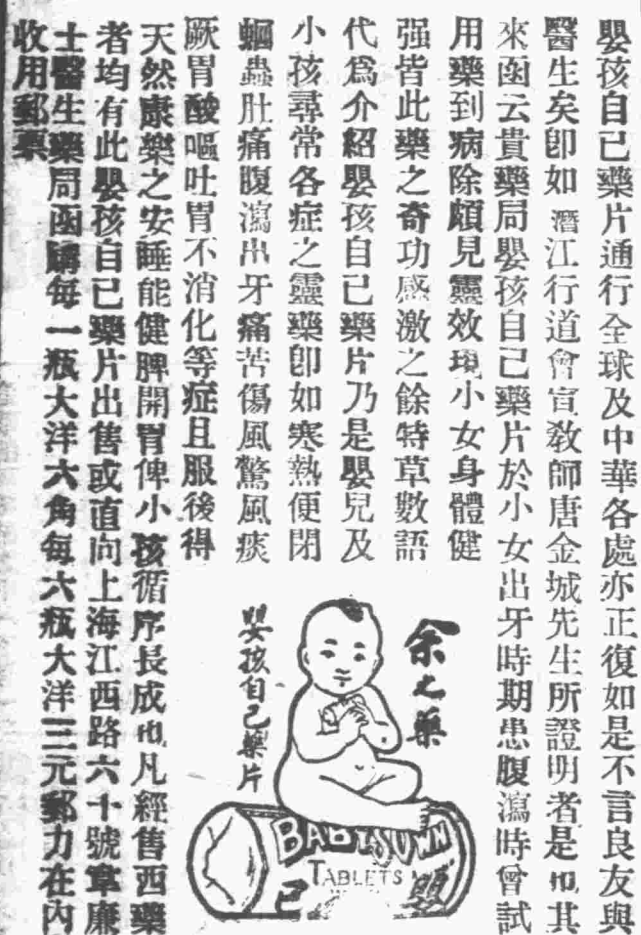 嬰孩自己藥片通行全球及中華各處亦正復如是不言良友與
醫生矣卽如潛江行道會宣敎師唐金城先生所證明者是也其
來函云貴藥局嬰孩自己藥片於小女出牙時期患腹瀉時曾試
用藥到病除頗見靈效現小女身體健
强皆此藥之奇功感激之餘特草數語
代爲介紹嬰孩自己藥片乃是嬰兒及
小孩尋常各症之靈藥卽如寒熱便閉
蛔蟲肚痛腹瀉出牙痛苦傷風驚風痰
厥胃酸嘔吐胃不消化等症且服後得
天然康樂之安睡能健脾開胃俾小孩循序長成也凡經售西藥
者均有此嬰孩自己藥片出售或直向上海江西路六十號韋廉
士醫生藥局函購每一瓶大洋六角每六瓶大洋三元郵力在內
收用郵票
余之藥
嬰孩自己藥片
BABY'S OWN
TABLETS
己